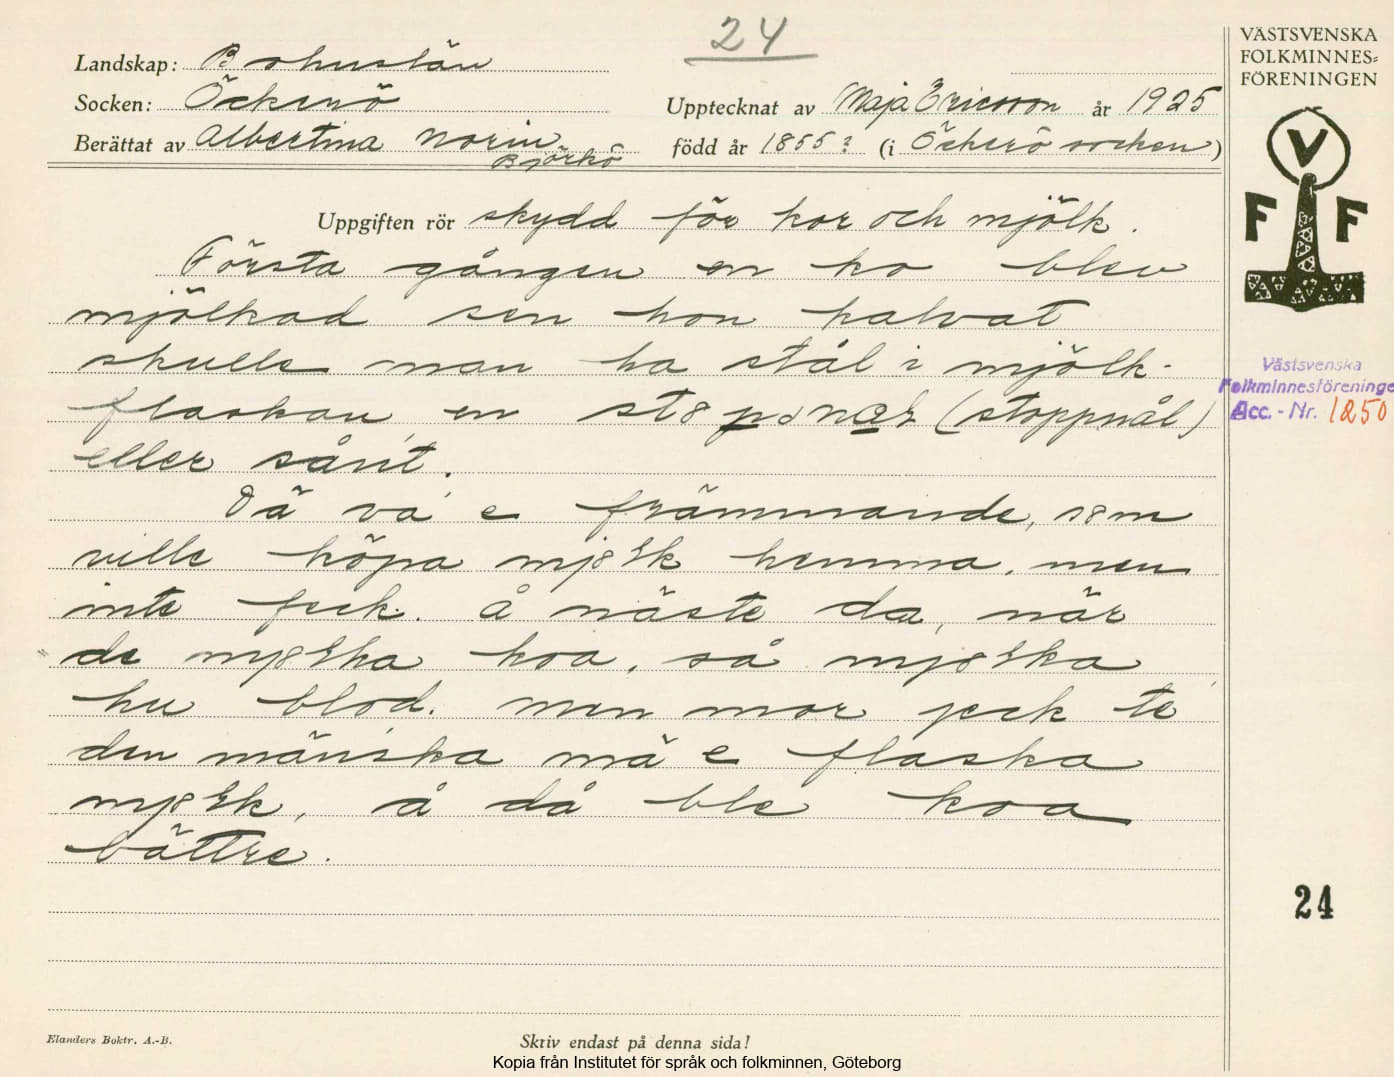 24
Landskap: Bohuslän
Socken: Öckerö
Upptecknat av Maja Ericsson år 1925
Berättat av Albertina Norin
Björkö
född år 1855? (i Öckerö socken)
Uppgiften rör skydd för kor och mjölk.
Första gången en ko blev
mjölkad sen hon kalvat
skulle man ha stål i mjölk-
flaskan, en
(stoppnål)
eller sånt.
Då va e främmande, som
ville köpa mjölk hemma, men
inte feck. Å näste da, när
de mjölka koa, så mjölka
hu blod. Men mor jeck te
den mänska mä e flaska
mjölk, å då ble koa
bättre.
Elanders Boktr. A.-B.
Skriv endast på denna sida!
Kopia från Institutet för språk och folkminnen, Göteborg
VÄSTSVENSKA
FOLKMINNES-
FÖRENINGEN
V
F F
Västsvenska
Folkminnesföreninge
Acc. - Nr. 1250
24